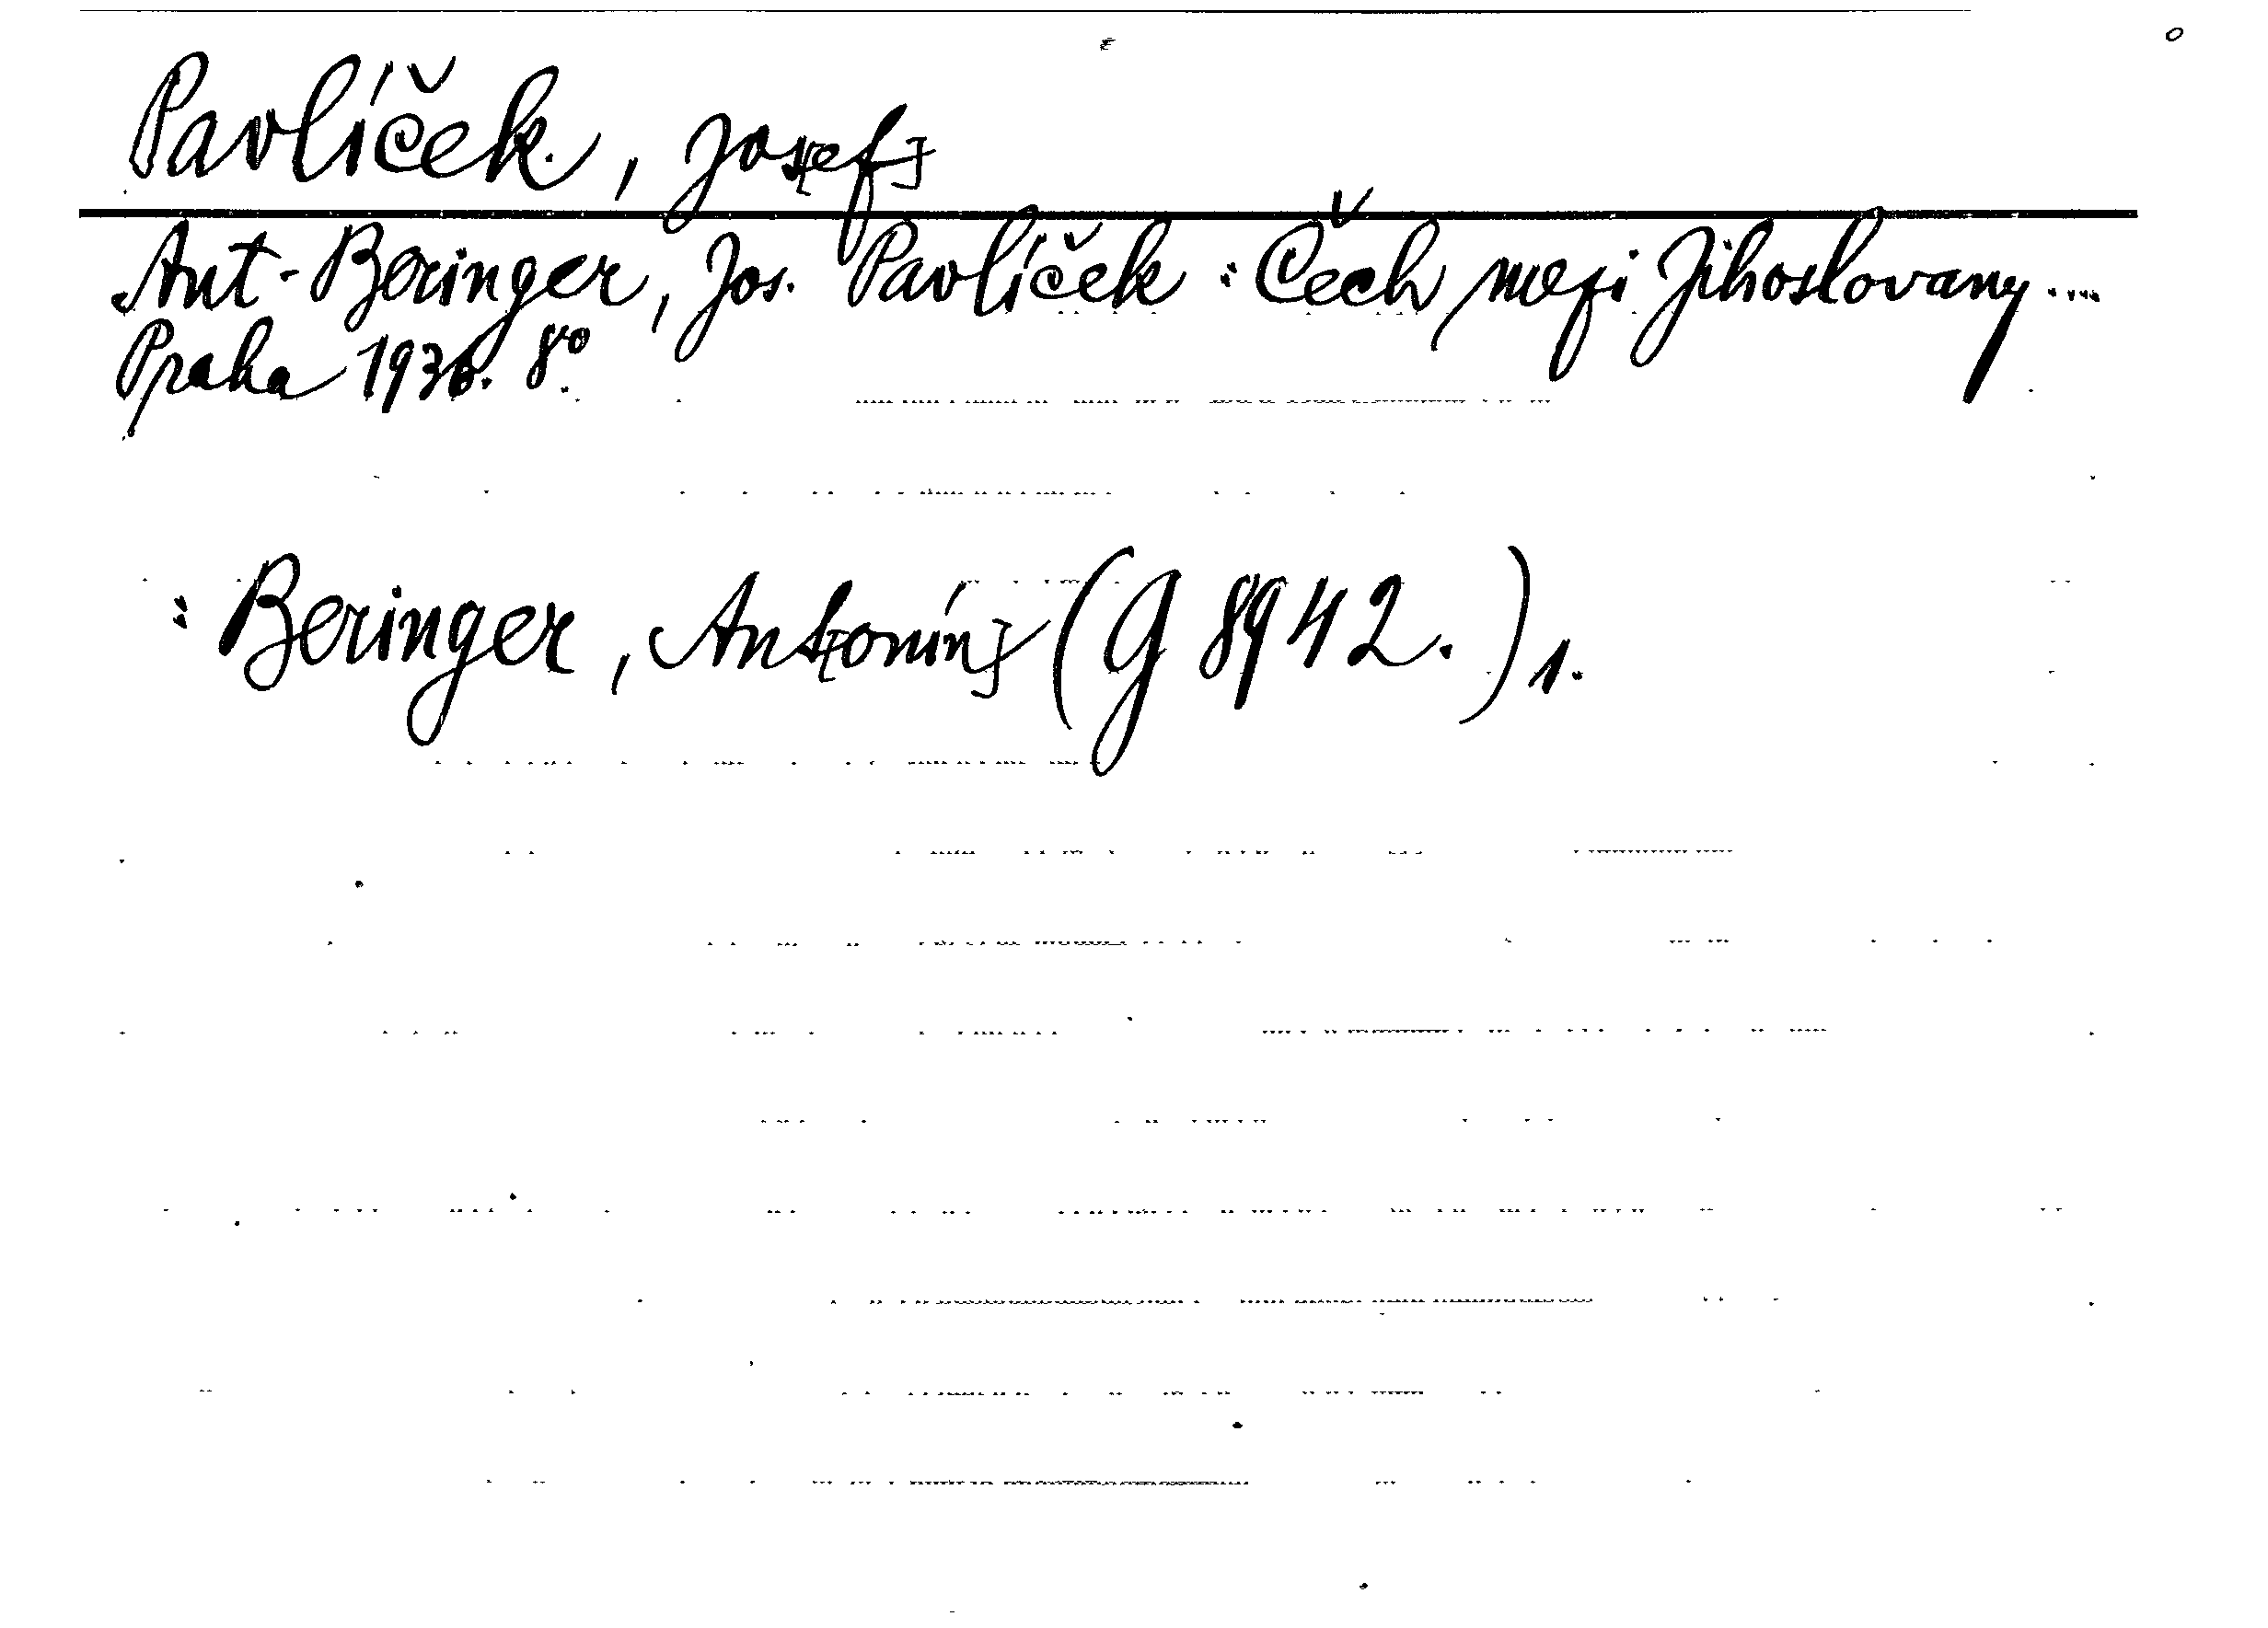 Pavlíček, Jos[ef]
Ant. Beringer, Jos. Pavlíček: Čech mezi Jihoslovany....
Praha 1936. 8°.
: Beringer, Ant[onín] (G 8942.) 1.